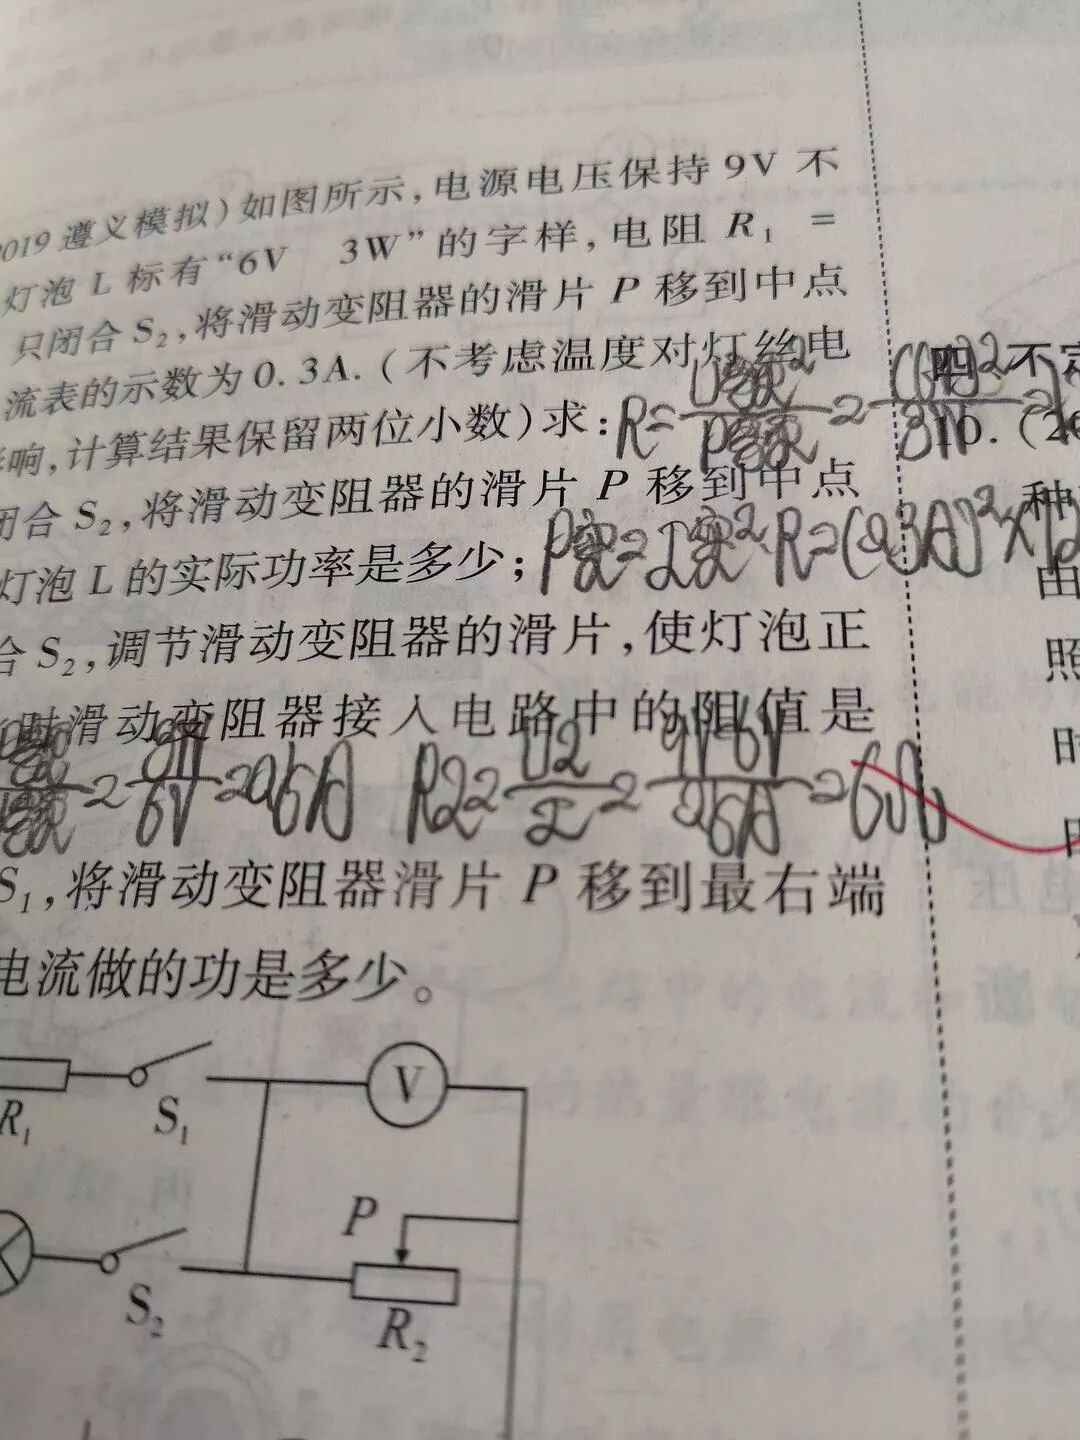 2019遵义模拟)如图所示,电源电压保持9V不
灯泡L标有“6V 3W”的字样,电阻R₁=
只闭合S₂,将滑动变阻器的滑片P移到中点
流表的示数为0.3A.(不考虑温度对灯丝电
四、不定
影响,计算结果保留两位小数)求:R=
10.(20
闭合S₂,将滑动变阻器的滑片P移到中点
种
灯泡L的实际功率是多少;P实=I实²·R=(0.3A)²×12
由
合S₂,调节滑动变阻器的滑片,使灯泡正
照
时滑动变阻器接入电路中的阻值是
时
=3W/6V=0.5A R2=U2/I=9V-6V/0.5A=6Ω
S₁,将滑动变阻器滑片P移到最右端
电流做的功是多少。
R₁
S₁
V
P
S₂
R₂